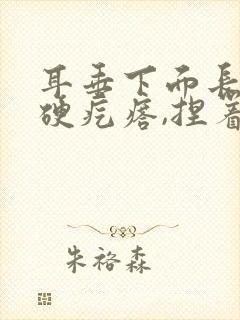 耳垂下而長
硬疙瘩,捏着
朱褣森